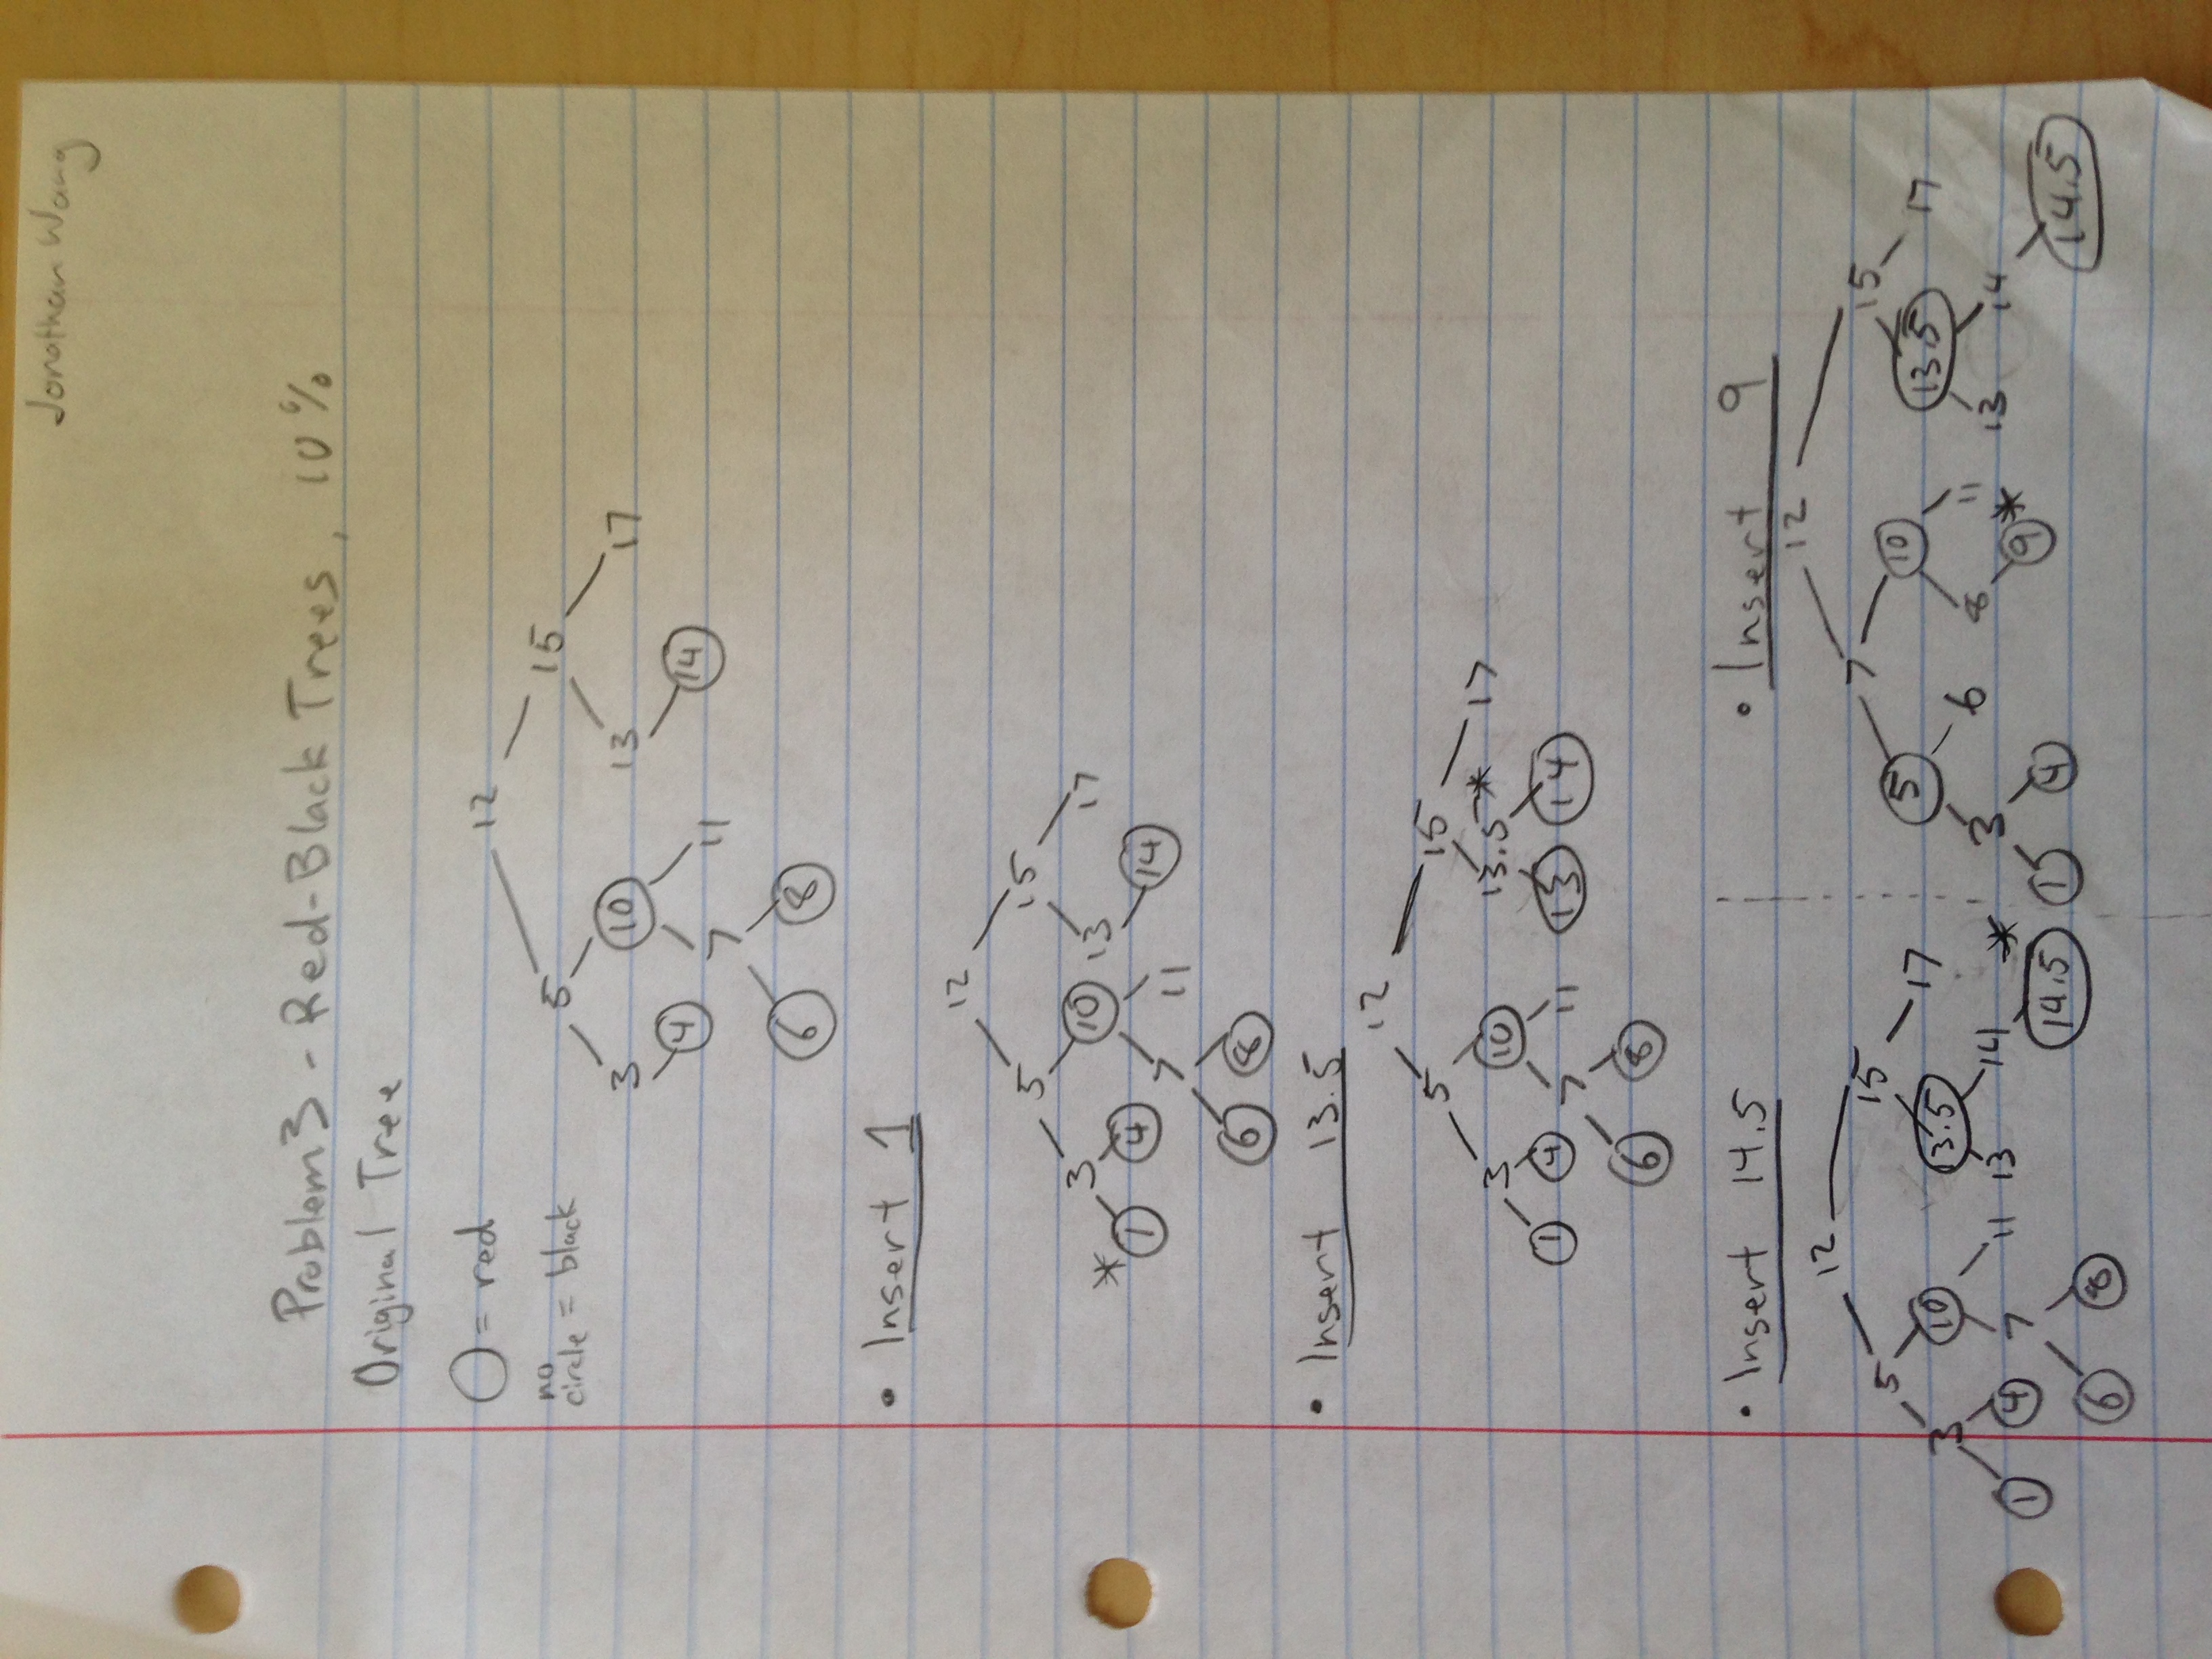 Jonathan Wang
Problem 3 - Red-Black Trees, 10%
Original Tree
= red
no circle = black
12
5 15
3 10 13 17
4 14
7 11
6 8
• Insert 1
12
5 15
3 10 13 17
* 1 4 14
7 11
6 8
• Insert 13.5
12
5 15
3 10 13.5 * 17
1 4 7 11 13 14
6 8
• Insert 14.5
12
5 15
3 10 13.5 17
1 4 7 11 13 14
6 8 14.5 *
• Insert 9
12
7 15
5 10 13.5 17
3 6 8 11 13 14
1 4 9 * 14.5